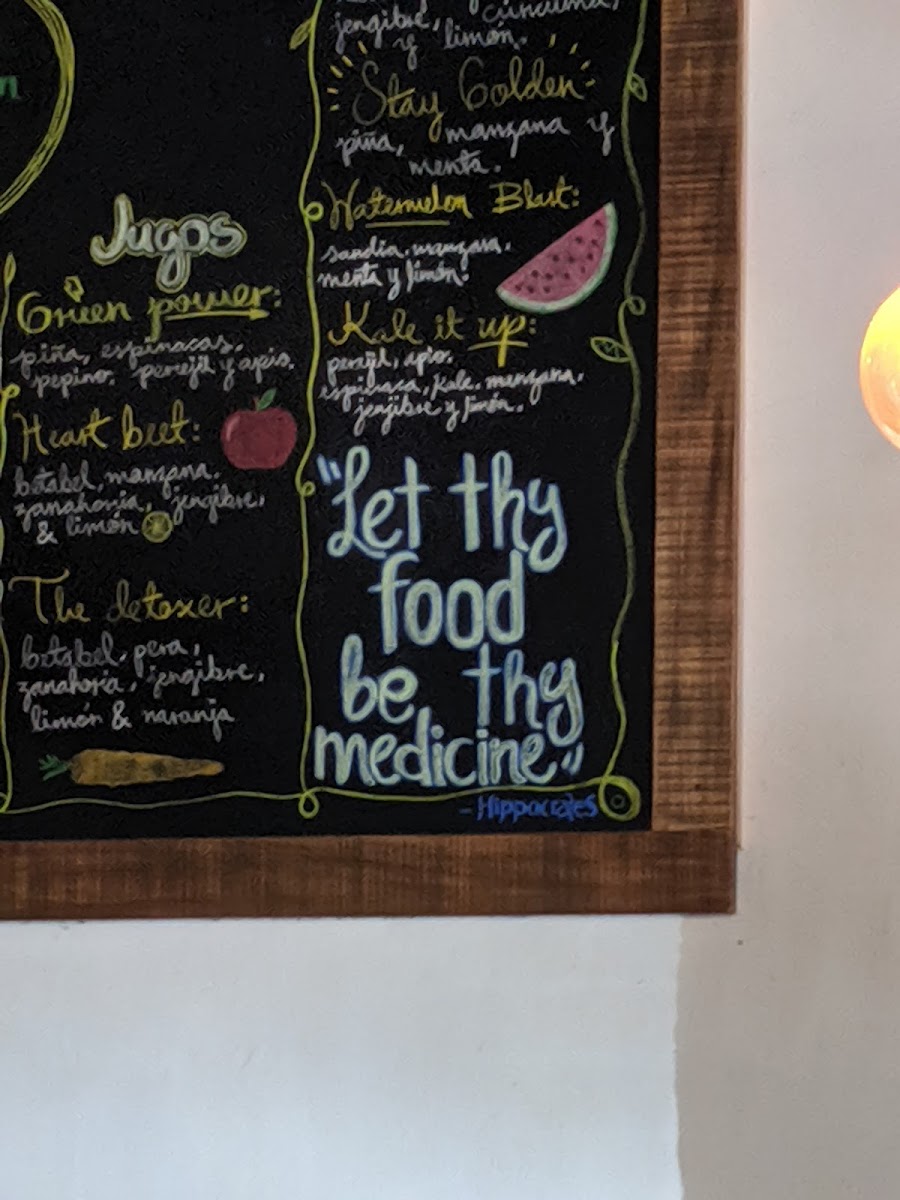 n
Jugos
Green power:
piña, espinacas.
pepino. perejil y apio.
Heart beet:
betabel, manzana.
zanahoria, jengibre,
& limón
The detoxer:
betabel, pera,
zanahoria, jengibre,
limón & naranja
jengibre, cúrcuma,
y limón.
Stay Golden
piña, manzana y
menta.
Watermelon Blast:
sandía, manzana,
menta y limón.
Kale it up:
perejil, apio.
espinaca, kale, manzana,
jenjibre y limón.
"Let thy
food
be thy
medicine"
- Hippocrates